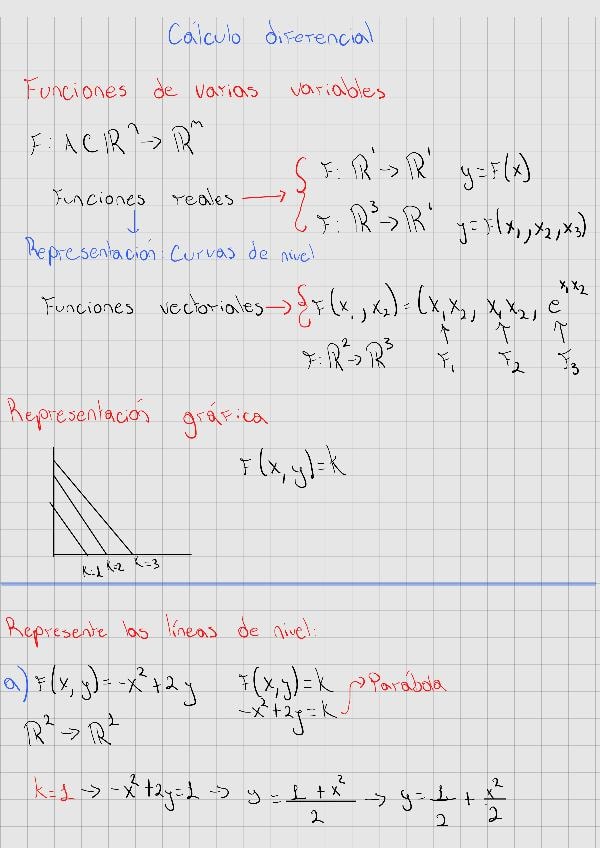 Cálculo diferencial
Funciones de varias variables
F: A ⊂ ℝⁿ → ℝᵐ
Funciones reales → { F: ℝ¹ → ℝ¹ y = F(x)
F: ℝ³ → ℝ¹ y = F(x₁, x₂, x₃)
↓
Representación: Curvas de nivel
Funciones vectoriales → { F(x₁, x₂) = (x₁x₂, x₁x₂, e^x₁x₂
↑ ↑ ↑
F: ℝ² → ℝ³ F₁ F₂ F₃
Representación gráfica
F(x, y) = k
k=1 k=2 k=3
Represente las líneas de nivel:
a) F(x, y) = -x² + 2y F(x, y) = k → Parábola
-x² + 2y = k
ℝ² → ℝ²
k=1 → -x² + 2y = 1 → y = (1 + x²)/2 → y = 1/2 + x²/2